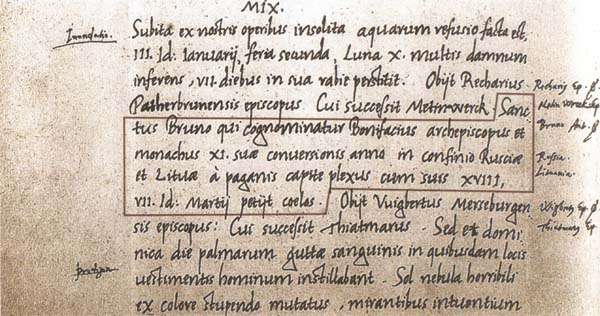 MIX.
Inundatio. Subita ex nostris operibus insolita aquarum refusio facta est,
III. Id: Ianuarij, feria secunda, Luna X. multis damnum
inferens, VII. diebus in sua rabie perstitit. Obijt Recharius
Patherbrunensis episcopus Cui successit Mettnwerck. Sanc¬
tus Bruno qui cognominatur Bonifacius archepiscopus et
monachus XI. suæ conversionis anno in confinio Rusciæ
et Lituæ à paganis capite plexus cum suis XVIII,
VII. Id: Martij petijt coelos. Obijt Vuigbertus Merseburgen
sis episcopus: Cui successit Thiatmarus. Sed et domi
nica die palmarum guttæ sanguinis in quibusdam locis
vestimentis hominum instillabant. Sol nebula horribili
ex colore stupendo mutatus, mirantibus intuentium
Ep.
Bruno
Russia.
Lituania.
Ep.
Ep.